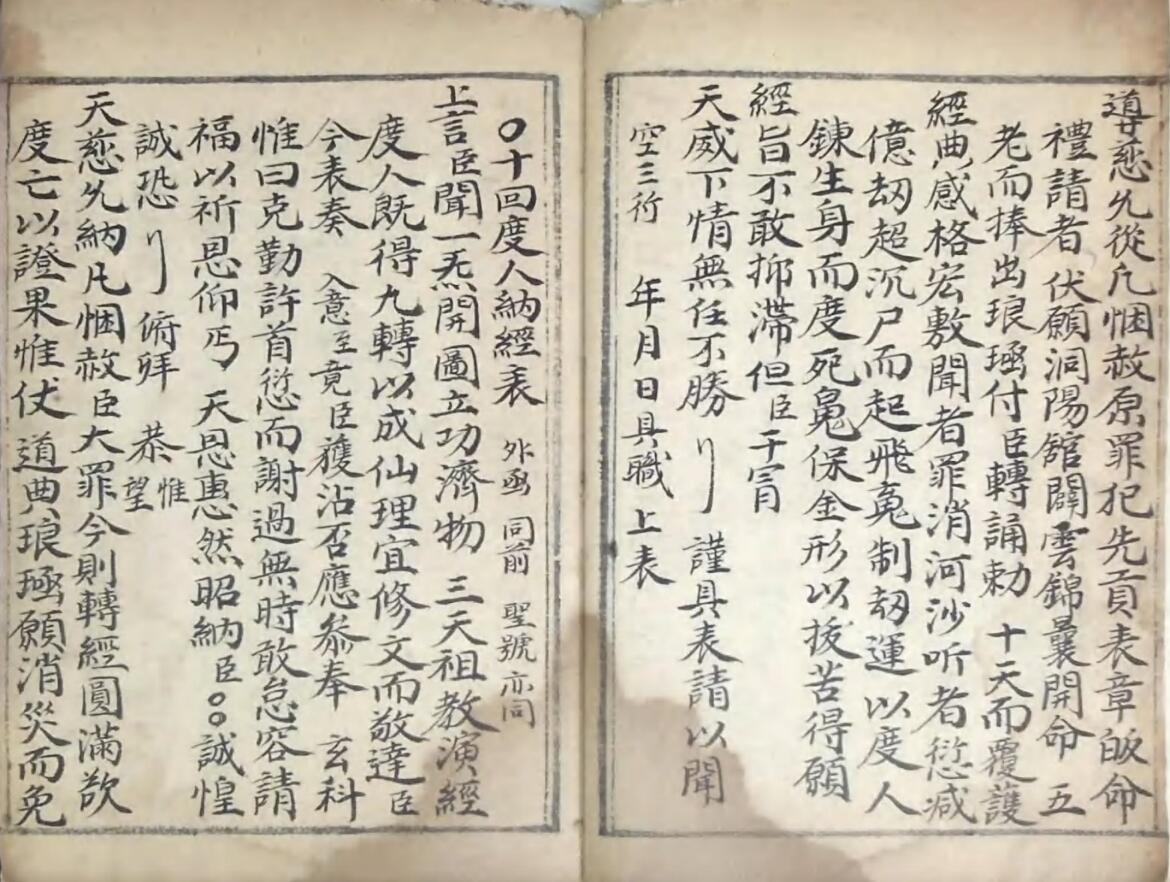 道慈允從凡悃赦原罪犯先貢表章皈命
禮請者伏願洞陽舘闢雲錦曩開命　五
老而捧出琅璚付臣轉誦勑　十天而覆護
經典感格宏敷聞者罪消河沙听者愆减
億刼超沉尸而起飛䰟制刼運以度人
鍊生身而度死䰟保金形以拔苦得願
經旨不敢抑滯但臣干冐
天威下情無任不勝〢謹具表請以聞
空三行　年月日具職　上表
〇十回度人納經表　外凾　同前　聖號亦同
上言臣聞一炁開圖立功濟物　三天祖教演經
度人既得九轉以成仙理宜修文而敬達臣
今表奏　入意至竟臣獲沾否應叅奉　玄科
惟曰克勤許首愆而謝過無時敢怠容請
福以祈恩仰丐　天恩惠然昭納臣〇〇誠惶
誠恐〢俯拜　恭惟望
天慈允納凡悃赦臣大罪今則轉經圓滿欲
度亡以證果惟仗　道典琅璚願消災而免